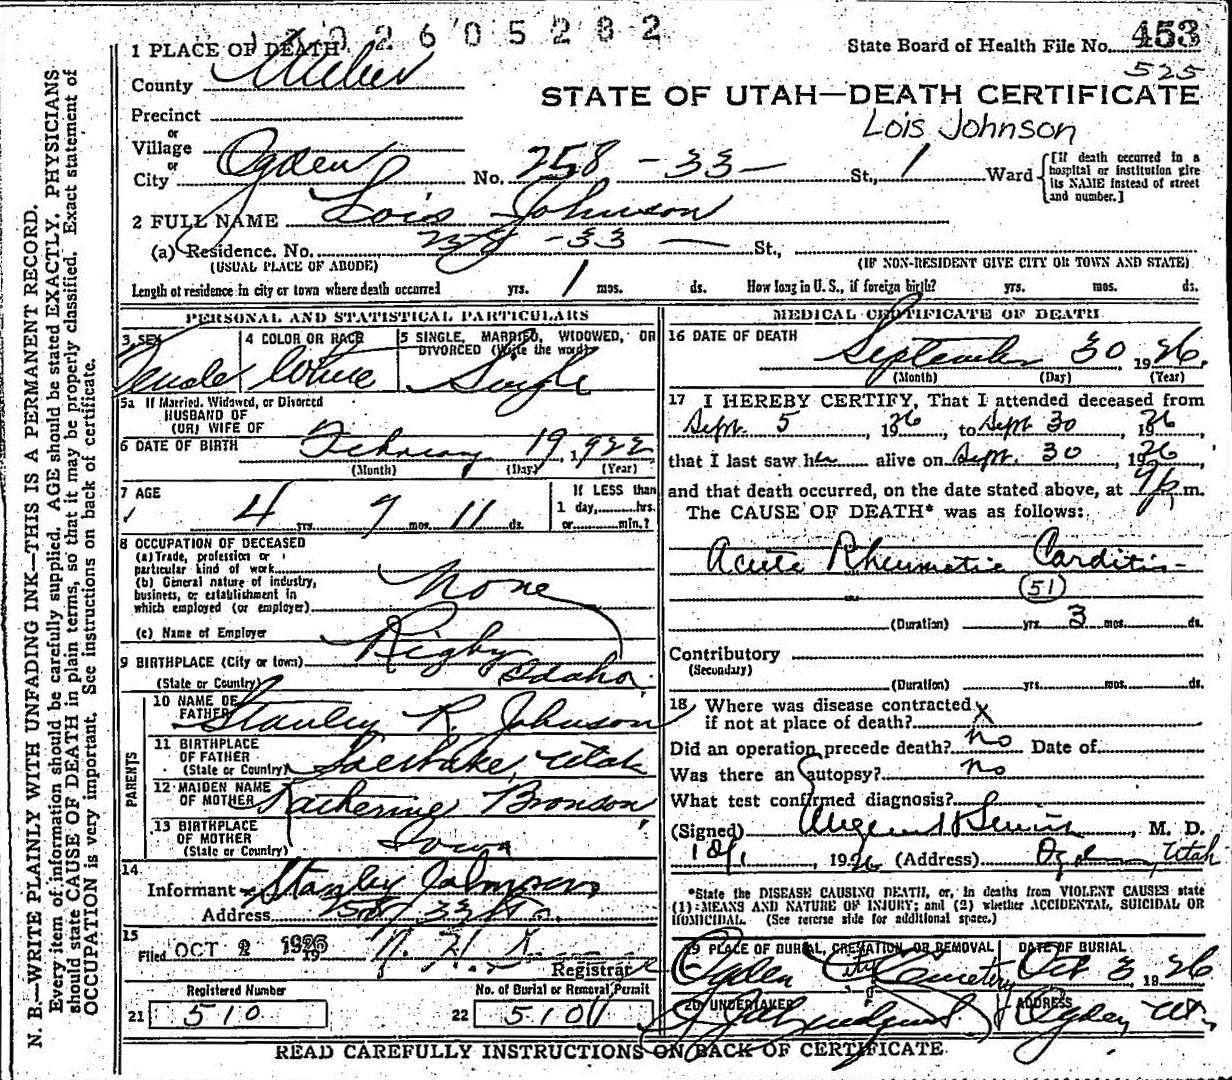 2605282
1 PLACE OF DEATH
State Board of Health File No. 453
525
County Weber
STATE OF UTAH—DEATH CERTIFICATE
Precinct
Lois Johnson
or
Village
or
City Ogden No. 258 - 33 — St., 1 Ward
[If death occurred in a hospital or institution give its NAME instead of street and number.]
2 FULL NAME Lois Johnson
(a) Residence. No. 258 - 33 — St.,
(USUAL PLACE OF ABODE) (IF NON-RESIDENT GIVE CITY OR TOWN AND STATE)
Length of residence in city or town where death occurred yrs. 1 mos. ds. How long in U. S., if foreign birth? yrs. mos. ds.
PERSONAL AND STATISTICAL PARTICULARS
3 SEX 4 COLOR OR RACE 5 SINGLE, MARRIED, WIDOWED, OR DIVORCED (Write the word)
Female White Single
5a If Married, Widowed, or Divorced
HUSBAND OF
(OR) WIFE OF
6 DATE OF BIRTH February 19, 1922
(Month) (Day) (Year)
7 AGE If LESS than
1 day, hrs.
4 yrs. 7 mos. 11 ds. or min.?
8 OCCUPATION OF DECEASED
(a) Trade, profession or
particular kind of work
(b) General nature of industry,
business, or establishment in
which employed (or employer) None
(c) Name of Employer
9 BIRTHPLACE (City or town) Rigby
(State or Country) Idaho
PARENTS
10 NAME OF FATHER Stanley R. Johnson
11 BIRTHPLACE OF FATHER
(State or Country) Salt Lake, Utah
12 MAIDEN NAME OF MOTHER Katherine Bronson
13 BIRTHPLACE OF MOTHER
(State or Country) Iowa
14
Informant Stanley Johnson
Address 258 33 St.
15
Filed OCT 2 1926
Registrar
Registered Number No. of Burial or Removal Permit
21 510 22 510
MEDICAL CERTIFICATE OF DEATH
16 DATE OF DEATH
September 30 1926.
(Month) (Day) (Year)
17 I HEREBY CERTIFY, That I attended deceased from
Sept. 5, 1926, to Sept 30, 1926
that I last saw her alive on Sept. 30, 1926
and that death occurred, on the date stated above, at 9 p. m.
The CAUSE OF DEATH* was as follows:
Acute Rheumatic Carditis
(51)
(Duration) yrs. 3 mos. ds.
Contributory
(Secondary)
(Duration) yrs. mos. ds.
18 Where was disease contracted
if not at place of death? X
Did an operation precede death? no Date of
Was there an autopsy? no
What test confirmed diagnosis?
(Signed), M. D.
10/1, 1926 (Address) Ogden, Utah
*State the DISEASE CAUSING DEATH, or, in deaths from VIOLENT CAUSES state
(1) MEANS AND NATURE OF INJURY; and (2) whether ACCIDENTAL, SUICIDAL OR
HOMICIDAL. (See reverse side for additional space.)
19 PLACE OF BURIAL, CREMATION, OR REMOVAL DATE OF BURIAL
Ogden City Cemetery Oct 3 1926
20 UNDERTAKER ADDRESS
Ogden, Ut.
READ CAREFULLY INSTRUCTIONS ON BACK OF CERTIFICATE
N. B.—WRITE PLAINLY WITH UNFADING INK—THIS IS A PERMANENT RECORD.
Every item of information should be carefully supplied. AGE should be stated EXACTLY. PHYSICIANS
should state CAUSE OF DEATH in plain terms, so that it may be properly classified. Exact statement of
OCCUPATION is very important. See instructions on back of certificate.